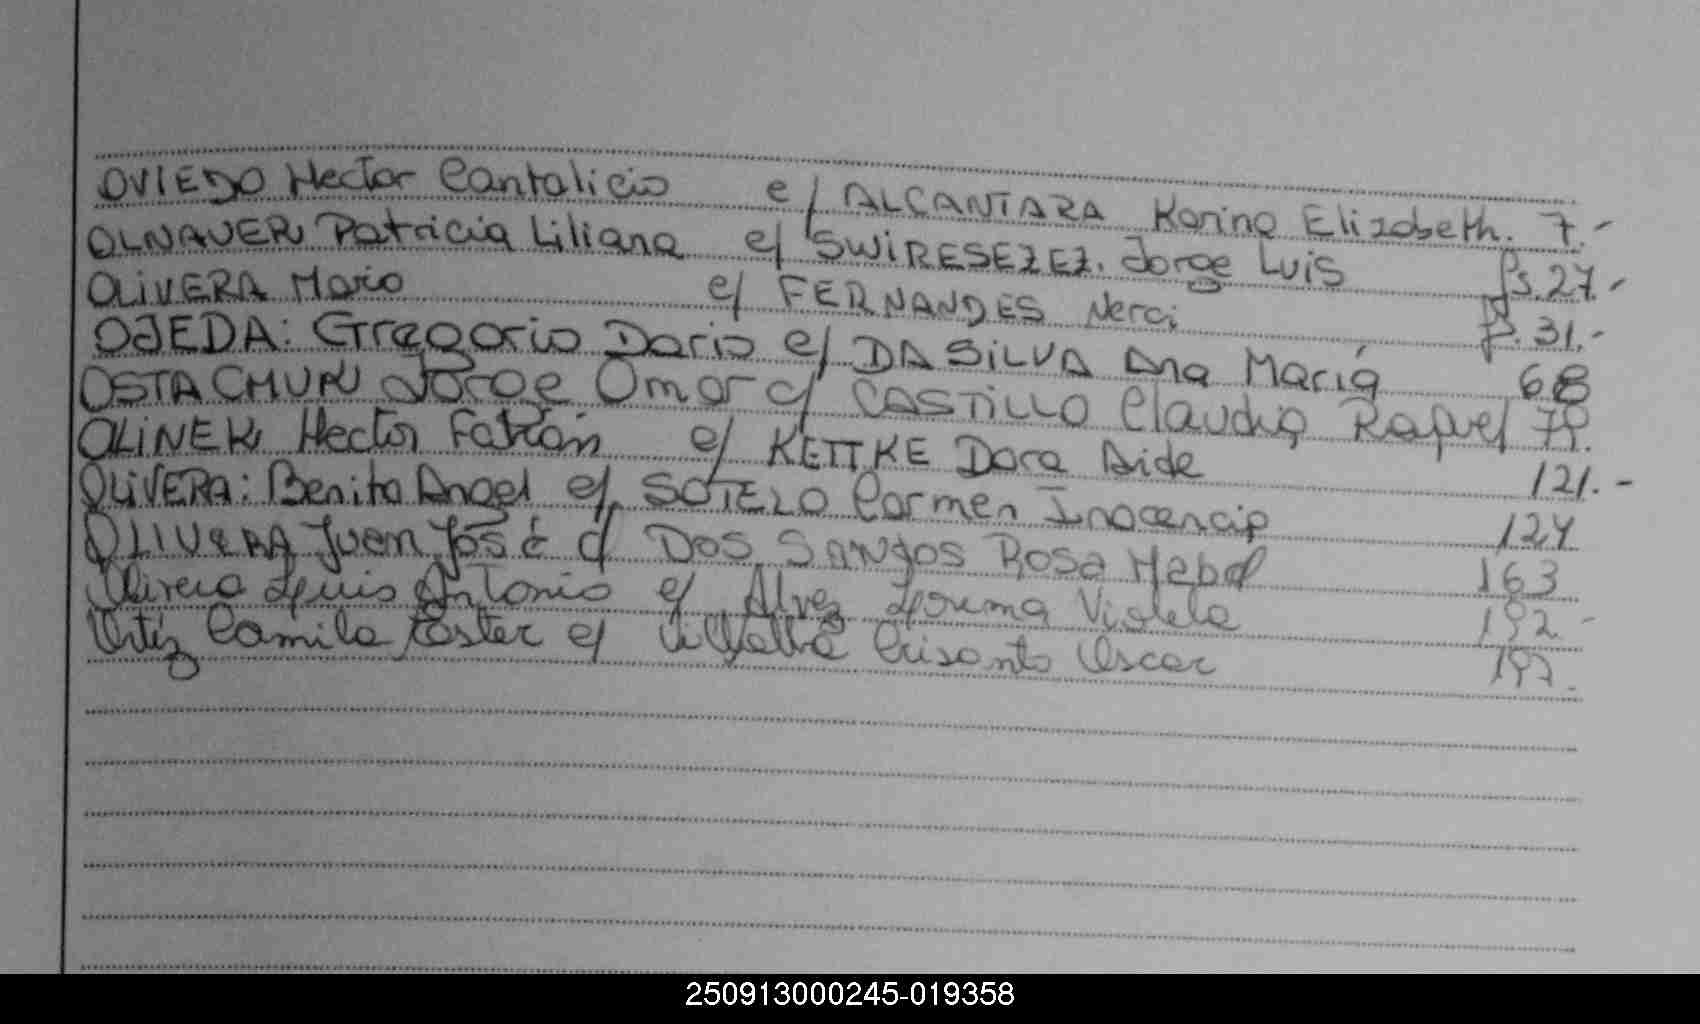 OVIEDO Hector Cantalicio c/ ALCANTARA Karina Elizabeth. 7.-
OLNAVER Patricia Liliana c/ SWIRESEZEZ. Jorge Luis fs. 27.-
OLIVERA Mario c/ FERNANDES Nerci f. 31.-
OJEDA: Gregorio Dario c/ DA SILVA Ana María 68
OSTACHUK Jorge Omar c/ CASTILLO Claudia Raquel
OLINEK Hector Fabián c/ KETTKE Dora Aide 121.-
OLIVERA: Benito Angel c/ SOTELO Carmen Inocencia 124
OLIVERA Juan José c/ DOS SANTOS Rosa Mabel 163
Olivera Luis Antonio c/ Alvez Violeta 192-
Ortiz Camila Ester c/ Villalba Crisanto Oscar